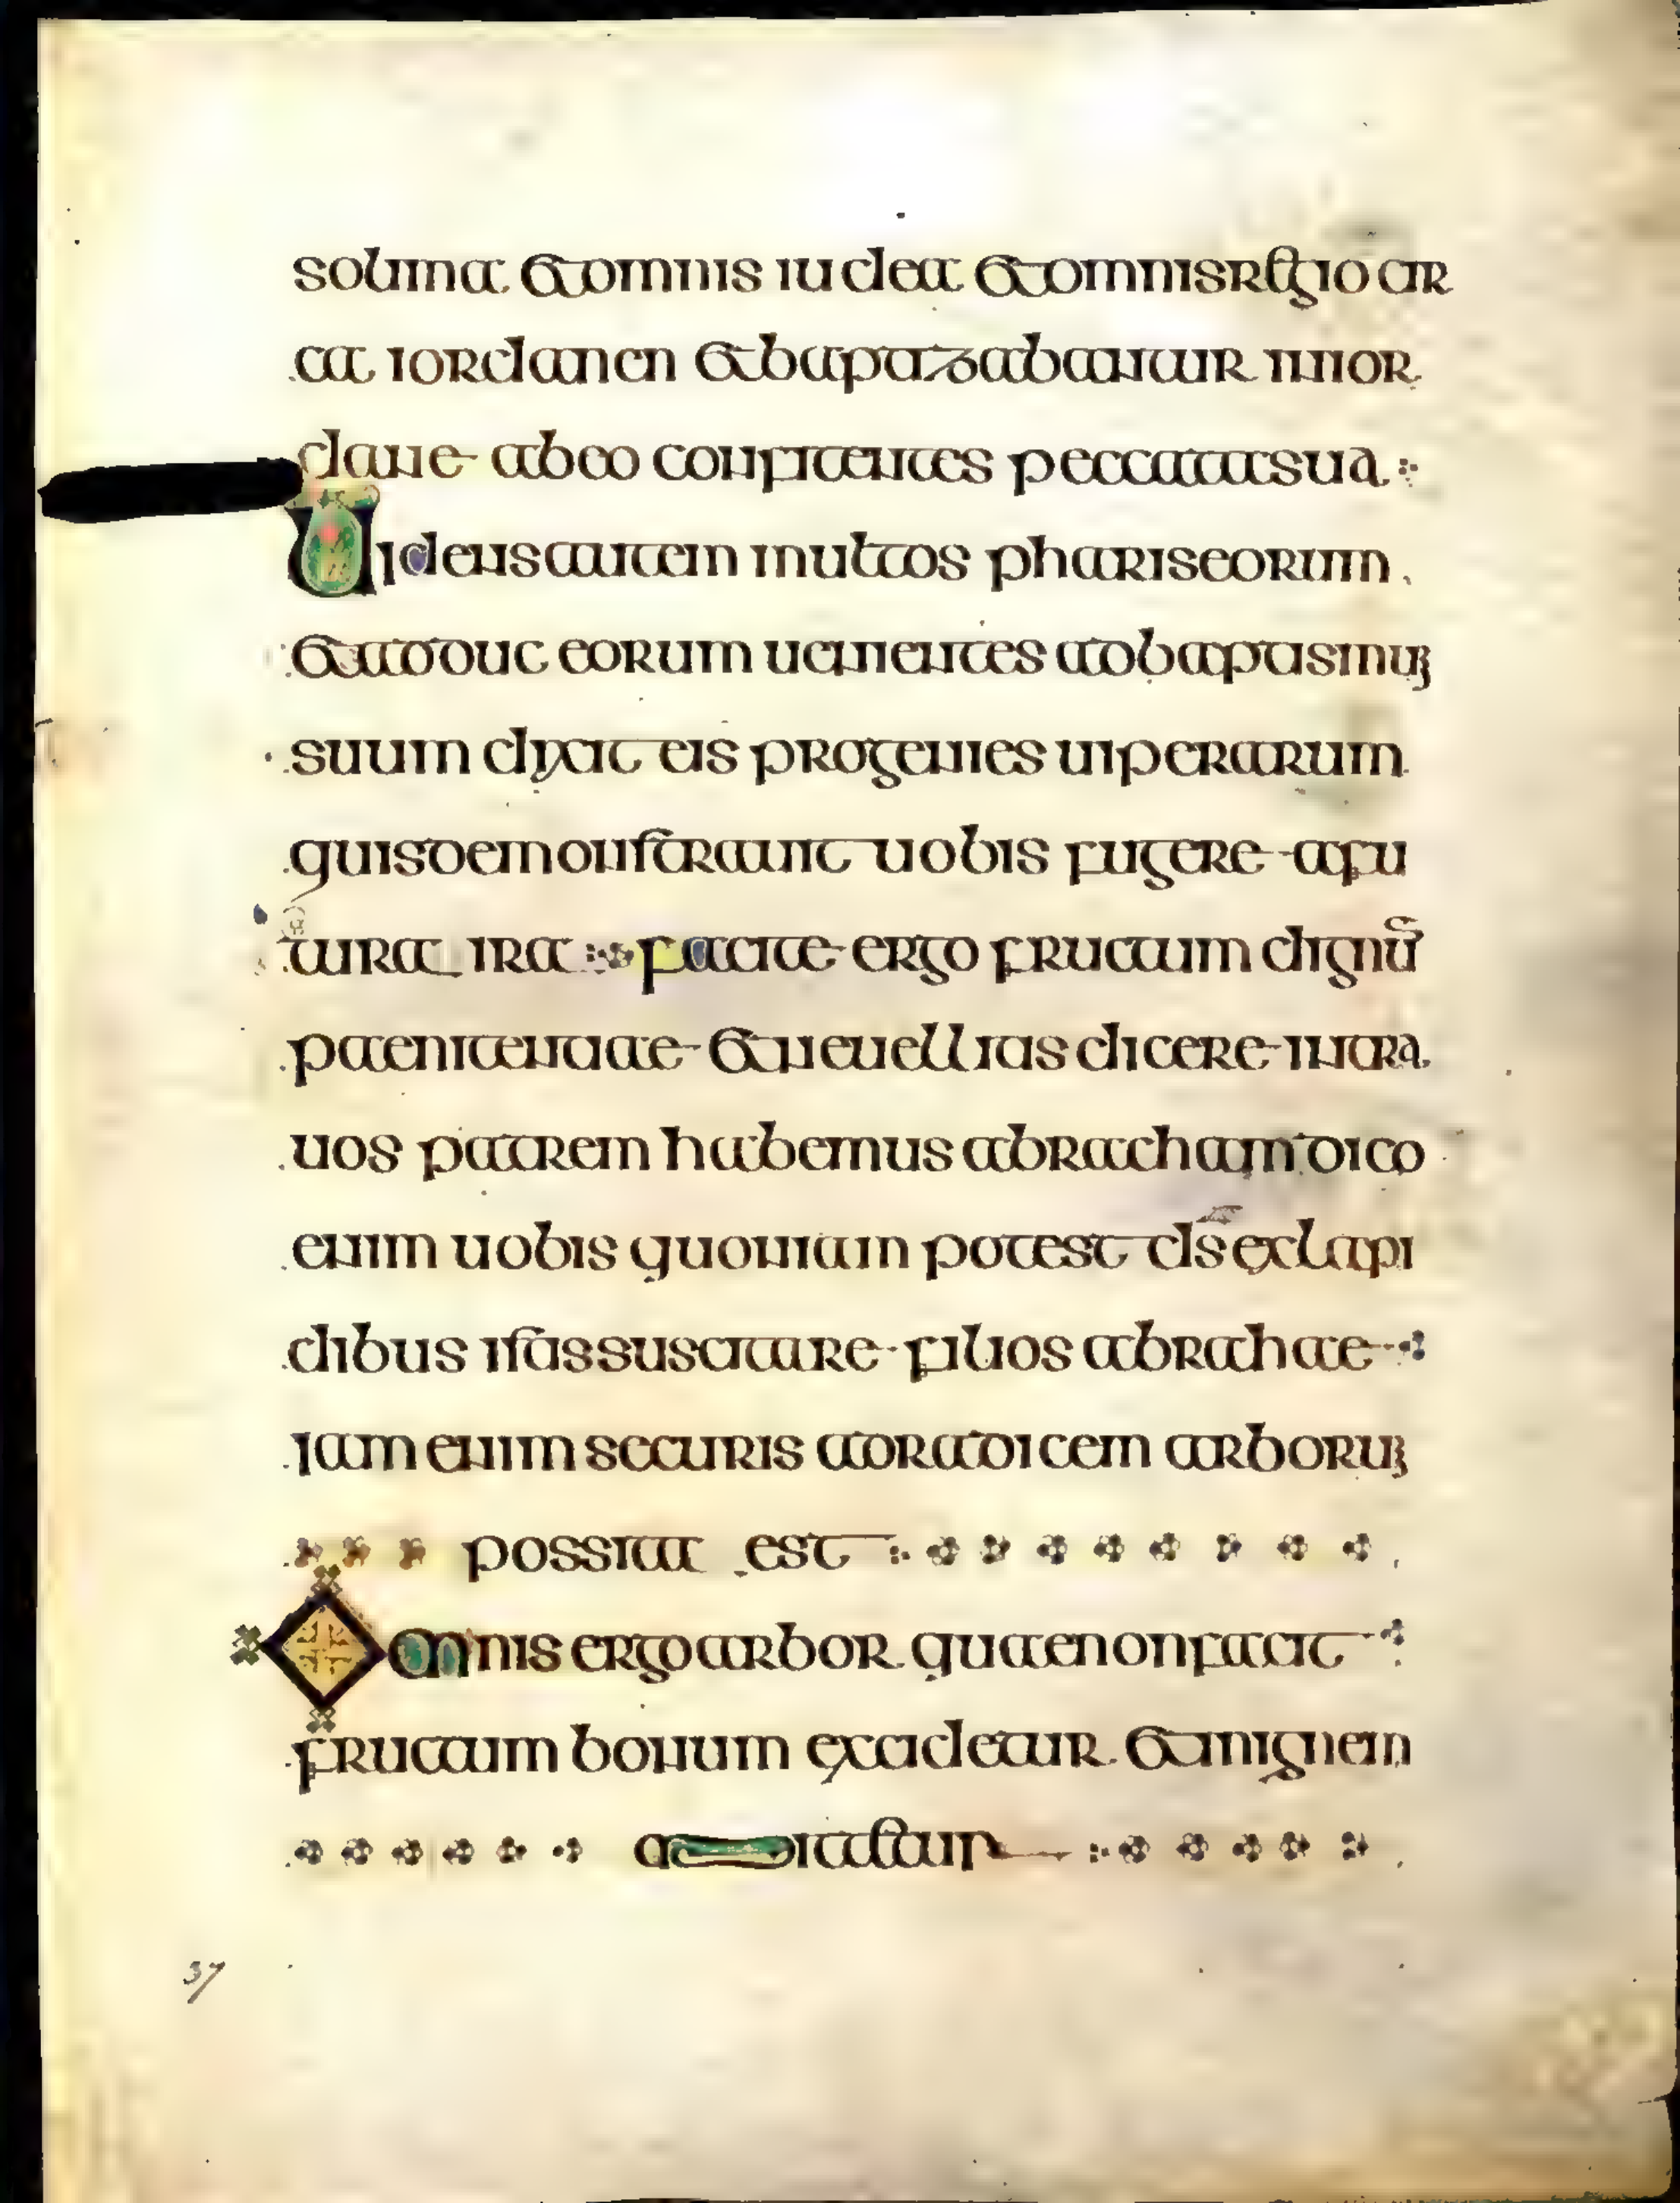 solima et omnis iudea et omnis regio cir
ca iordanen et baptizabantur in ior
dane ab eo confitentes peccata sua
Uidens autem multos phariseorum
et adouc eorum uenientes ad baptismuꝫ
suum dixit eis progenies uiperarum
quis demonstrauit uobis fugere a fu
tura ira facite ergo fructum dignū
paenitentiae et ne uellitis dicere intra
uos patrem habemus abracham dico
enim uobis quoniam potest d̄s ex lapi
dibus istis suscitare filios abrahae
iam enim securis ad radicem arboruꝫ
possita est
Omnis ergo arbor quae non facit
fructum bonum excidetur et in ignem
mittetur
37